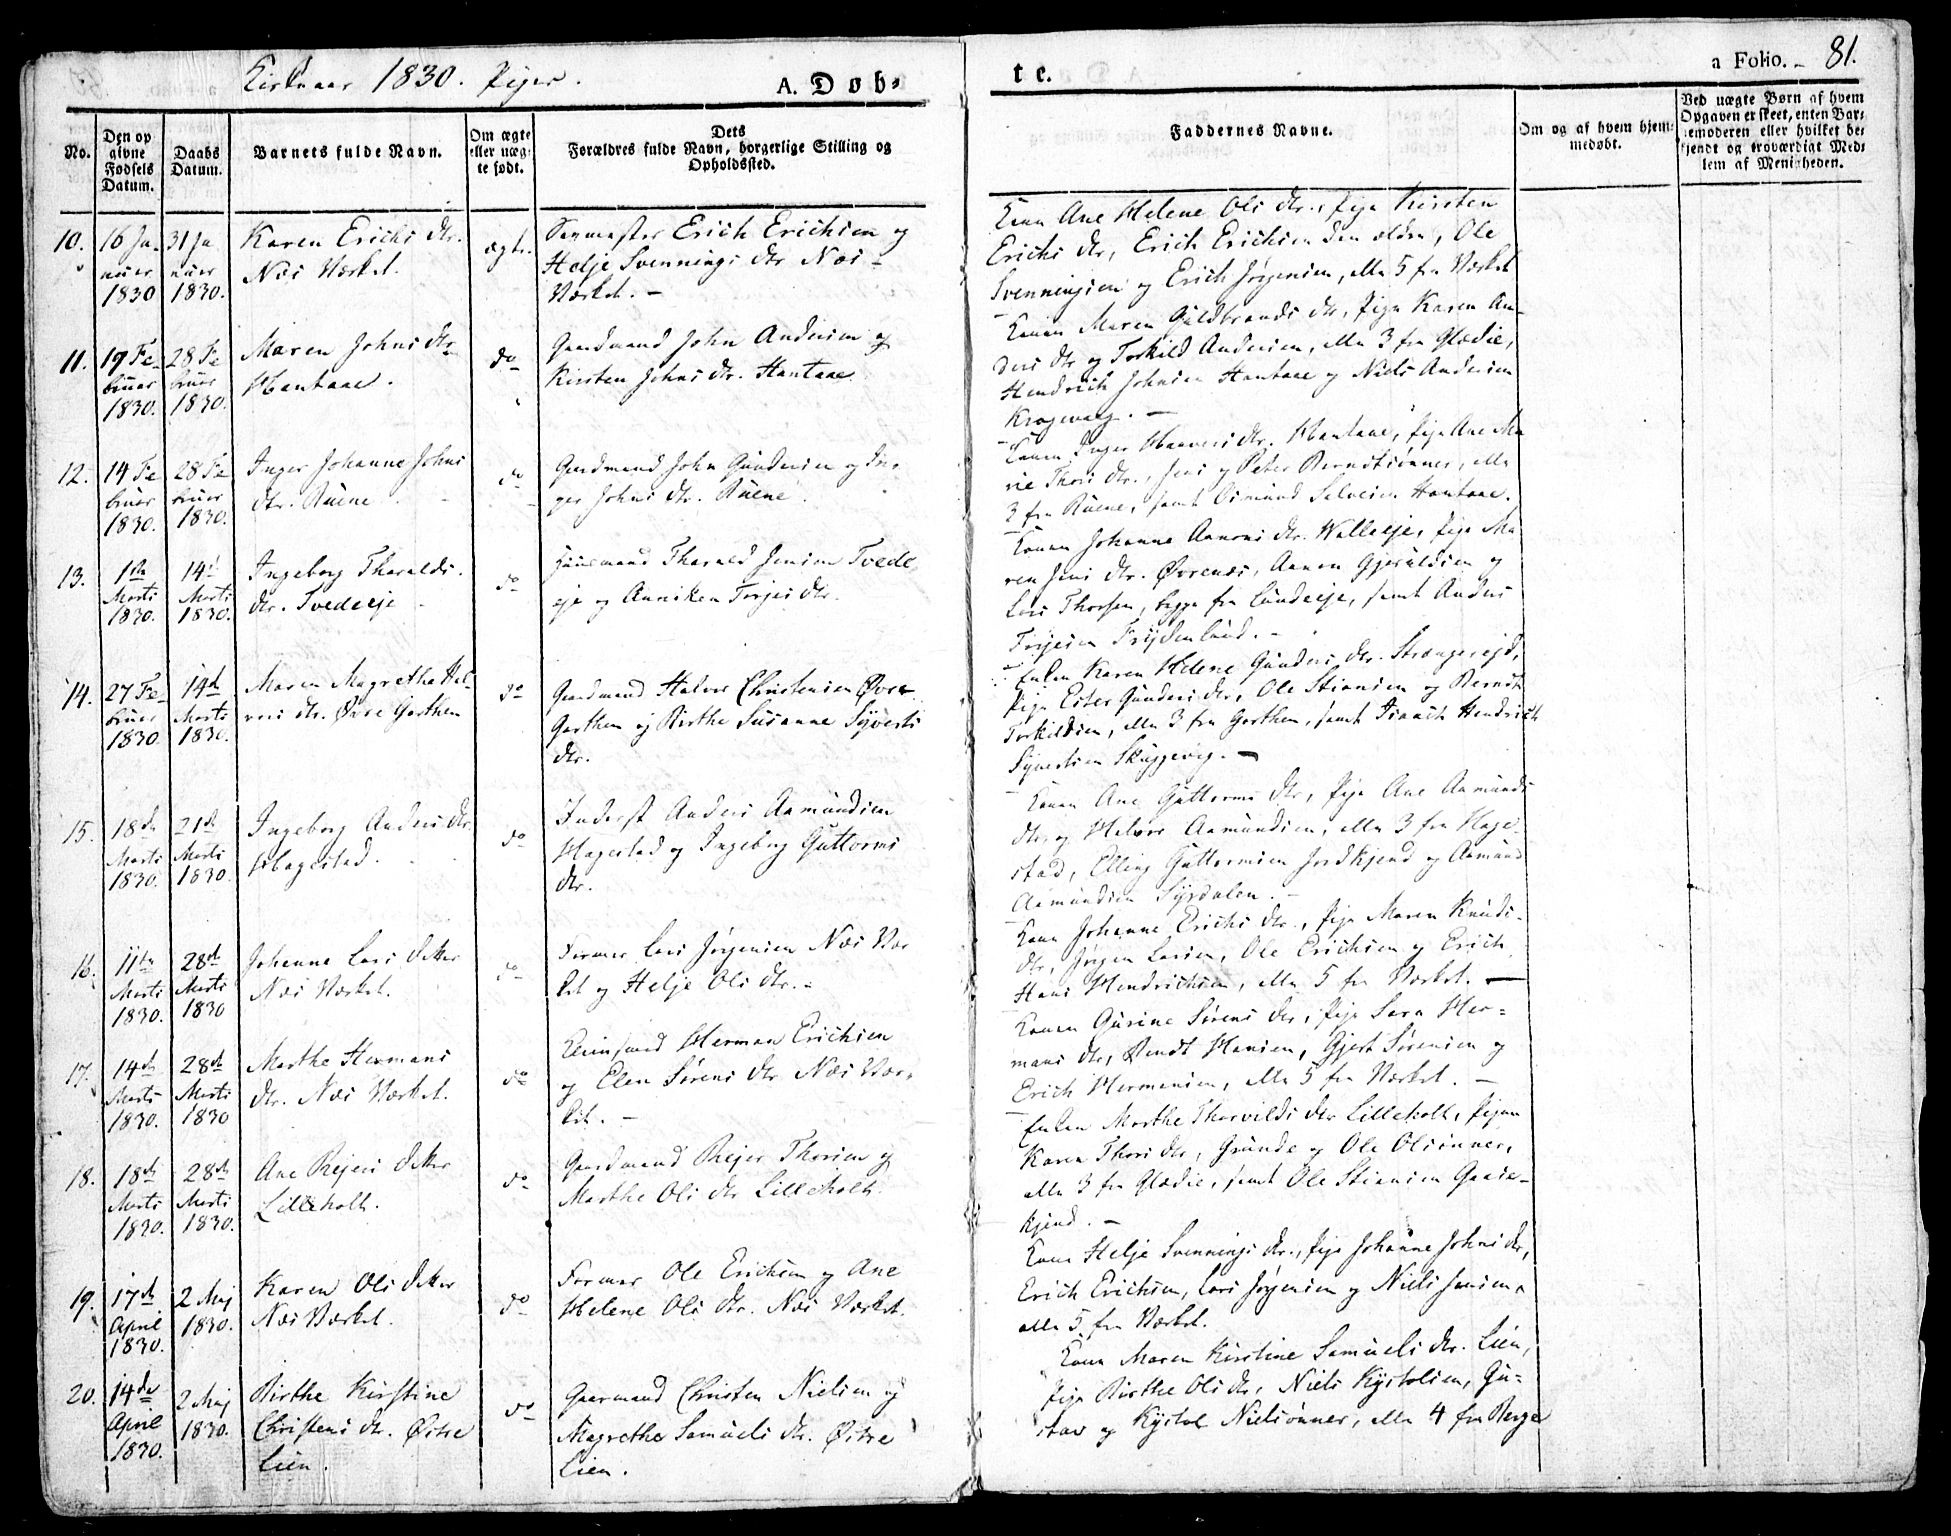 Kirkeaar 1830. Piger.
A. Døb-
te.
a Folio. 81.
No.
Den op
givne
Fødsels
Datum.
Daabs
Datum.
Barnets fulde Navn.
Om ægte
eller uæg-
te født.
Dets
Forældres fulde Navn, borgerlige Stilling og
Opholdssted.
Faddernes Navne.
Om og af hvem hjem-
medøbt.
Ved uægte Børn af hvem
Opgaven er skeet, enten Bar-
nemoderen eller hvilket be-
kjendt og troværdigt Med-
lem af Menigheden.
10.
16 Ja-
nuar
1830
31 Ja
nuar
1830.
Karen Erichs dtr.
Næs Værket.
ægte.
Erich Erichsen og
Helje Svennings dtr Næs-
Værket. -
Konen Ane Helene Ols dtr., Pige Kirsten
Erichs dtr, Erich Erichsen den ældre, Ole
Svenningsen og Erich Jørgensen, alle 5 fra Værket
11.
19 Fe-
bruar
1830.
28 Fe
bruar
1830.
Maren Johns dtr
Hantaae.
do
Gaardmand John Andersen og
Kirsten Johns dtr. Hantaae
Konen Maren Guldbrands dtr, Pige Karen An-
ders dtr og Torkild Andersen, alle 3 fra Glødie,
Hendrich Johnsen Hantaae og Niels Andersen
Krogevaag. -
12.
14 Fe
bruar
1830.
28 Fe
bruar
1830.
Inger Johanne Johns
dtr. Ruene
do
Gaardmand John Gundersen og In-
ger Johns dtr. Ruene.
Konen Inger Haavers dtr. Hantaae, Pige Ane Ma
rie Thors dtr., Jens og Peter Berndtsønner, alle
3 fra Ruene, samt Osmund Hantaae.
13.
1ste
Marts
1830.
14de
Marts
1830.
Ingeborg Tharalds
dtr. Tvedeeje
do
Huusmand Tharald Jensen Tvede
eje og Anniken Torjes dtr.
Konen Johanne Aanons dtr. Walleeje, Pige Ma
ren Jens dtr. Øvrenes, Aanon Gjeruldsen og
Lars Thorsen, begge fra Lundeeje, samt Anders
Torjesen Frydenlund. -
14.
27 Fe-
bruar
1830
14de
Marts
1830.
Maren Magrethe Hal-
vors dtr. Øvre Garthen
do
Gaardmand Halvor Christensen Øvre
Garthen og Birthe Susanne Syverts
dtr.
Enken Karen Helene Gunders dtr. Strængereid,
Pige Ester Gunders dtr, Ole Stiansen og Berndt
Torkildsen, alle 3 fra Garthen, samt Isaach Hendrich
Syvertsen Skuggevig. -
15.
18de
Marts
1830.
21de
Marts
1830
Ingeborg Anders dtr
Hagestad.
do
Inderst Anders Aamundsen
Hagestad og Ingeborg Guttorms
dtr.
Konen Ane Guttorms dtr, Pige Ane Aamunds
dtr, og Halvor Aamundsen, alle 3 fra Hage-
stad, Elling Guttormsen Jordkjend og Aamund
Aamundsen Syrdalen. -
16.
11te
Marts
1830.
28de
Marts
1830
Johanne Lars datter
Næs Værket.
do
Former Lars Jørgensen Næs Vær
ket og Helje Ols dtr. -
Konen Johanne Erichs dtr., Pige Maren Knuds-
dtr, Jørgen Larsen, Ole Erichsen og Erich
Hans Hendrichsen, alle 5 fra Værket. -
17.
14de
Marts
1830.
28de
Marts
1830
Marthe Hermans
dtr. Næs Værket.
do
Herman Erichsen
og Elen Sørens dtr Næs Vær-
ket. -
Konen Gurine Sørens dtr, Pige Sara Her-
mans dtr, Bendt Hansen, Gjert Sørensen og
Erich Hermansen, alle 5 fra Værket. -
18.
18de
Marts
1830.
28de
Marts
1830.
Ane Rejers datter
Lilleholt.
do
Gaardmand Rejer Thorsen og
Marthe Ols dtr Lilleholt.
Enken Marthe Thorvilds dtr Lilleholt, Pigen
Karen Thors dtr, Grunde og Ole Olsønner,
alle 3 fra Glødie, samt Ole Stiansen Gaase-
kjend. -
19.
17de
April
1830.
2 Maj
1830.
Karen Ols datter
Næs Værket.
do
Former Ole Erichsen og Ane
Helene Ols dtr. Næs Værket.
Konen Helje Svennings dtr., Pige Johanne Johns dtr,
Erich Erichsen, Lars Jørgensen og Niels Jensen,
alle 5 fra Værket.
20.
14de
April
1830.
2 Maj
1830.
Birthe Kirstine
Christens dtr. Østre
Lien.
do
Gaarmand Christen Nielsen og
Magrethe Samuels dtr. Østre
Lien.
Konen Maren Kirstine Samuels dtr. Lien,
Pige Birthe Ols dtr, Niels Kystolsen, Gu-
stav og Kystol Nielsønner, alle 4 fra Berge